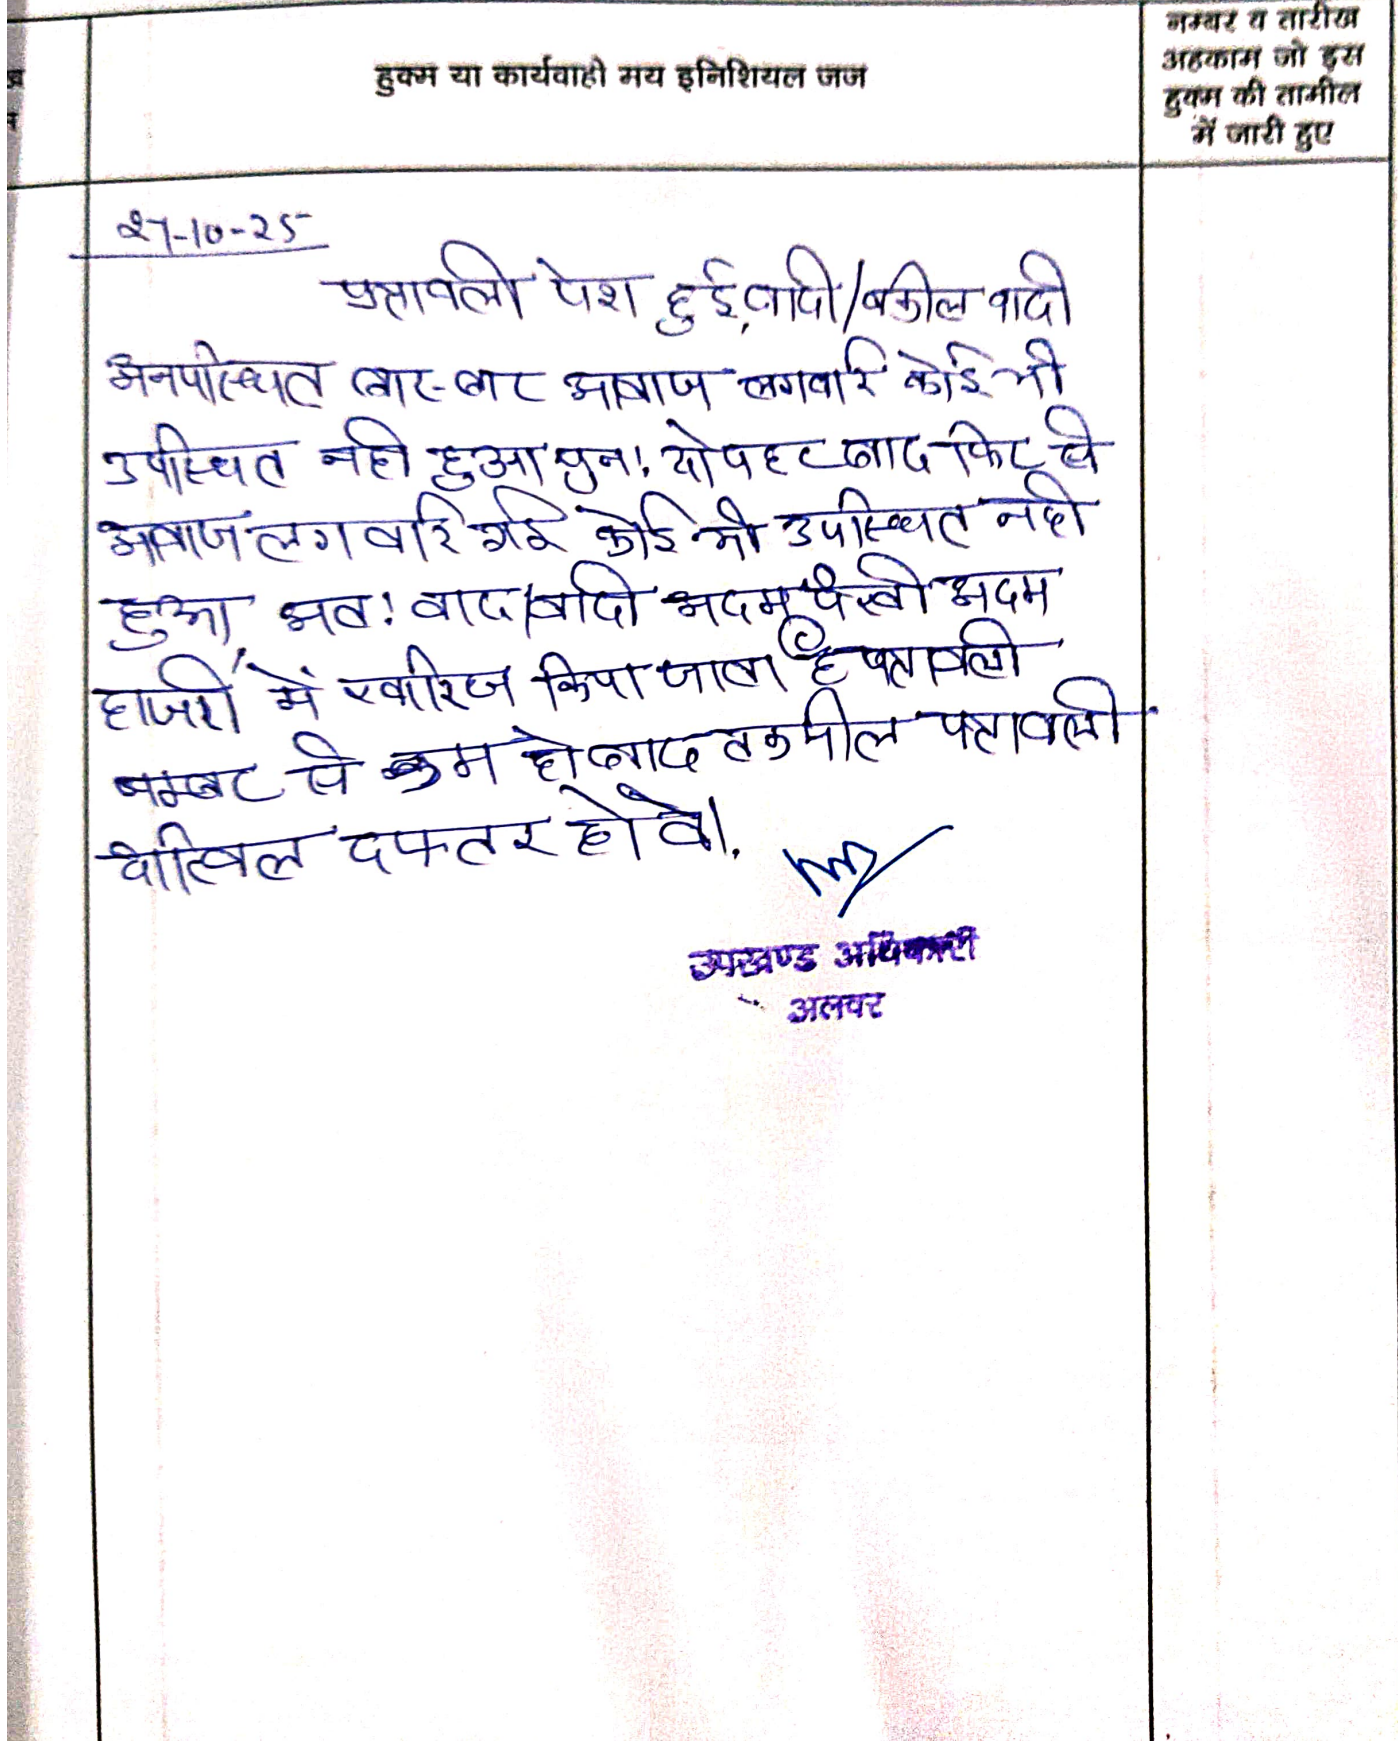 हुक्म या कार्यवाही मय इनिशियल जज
नम्बर व तारीख
अहकाम जो इस
हुक्म की तामील
में जारी हुए
27-10-25
पत्रावली पेश हुई, वादी/वकील वादी
अनुपस्थित बार-बार आवाज लगवाई कोई भी
उपस्थित नही हुआ पुनः दोपहर बाद फिर से
आवाज लगवाई गई कोई भी उपस्थित नही
हुआ, अतः वाद वादी अदम पैरवी अदम
हाजरी में खारिज किया जाता है पत्रावली
नम्बर से कम हो बाद तकमील पत्रावली
दाखिल दफ्तर होवे।
उपखण्ड अधिकारी
अलवर